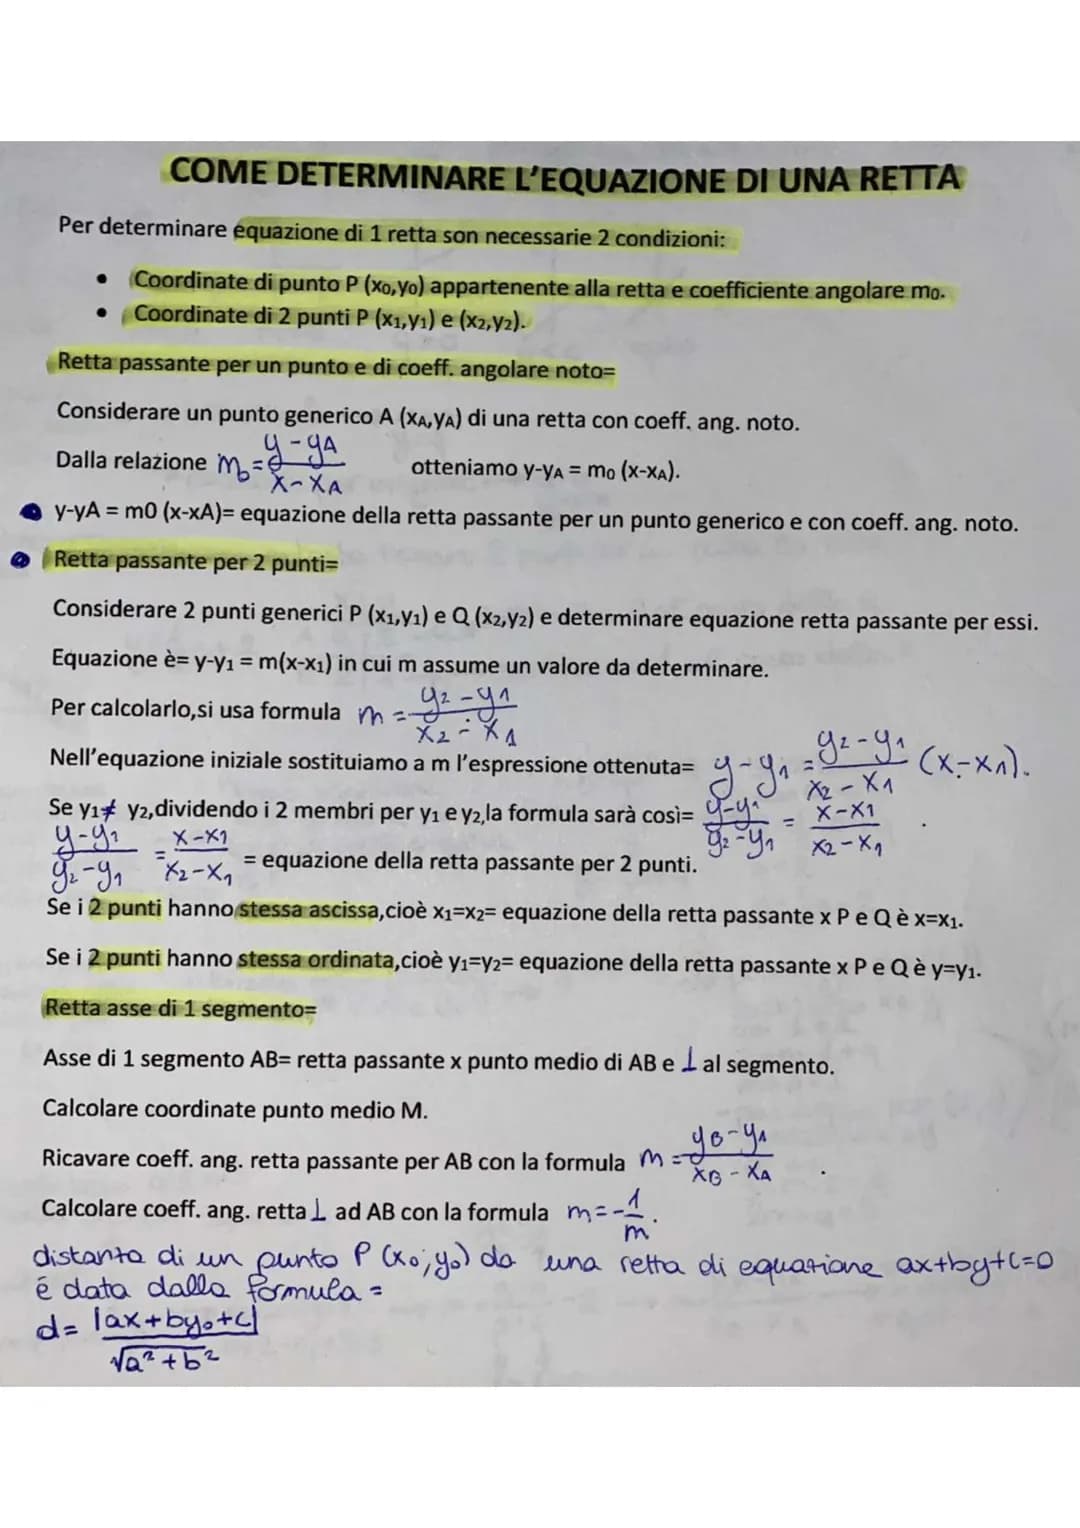 COME DETERMINARE L'EQUAZIONE DI UNA RETTA
Per determinare equazione di 1 retta son necessarie 2 condizioni:
• Coordinate di punto P (x₀,y₀) appartenente alla retta e coefficiente angolare m₀.
• Coordinate di 2 punti P (x₁,y₁) e (x₂,y₂).
Retta passante per un punto e di coeff. angolare noto=
Considerare un punto generico A (xA,yA) di una retta con coeff. ang. noto.
Dalla relazione m₀ = (y-yA)/(x-xA) otteniamo y-yA = m₀ (x-xA).
y-yA = m0 (x-xA)= equazione della retta passante per un punto generico e con coeff. ang. noto.
Retta passante per 2 punti=
Considerare 2 punti generici P (x₁,y₁) e Q (x₂,y₂) e determinare equazione retta passante per essi.
Equazione è= y-y₁ = m(x-x₁) in cui m assume un valore da determinare.
Per calcolarlo,si usa formula m = (y₂-y₁)/(x₂-x₁)
Nell'equazione iniziale sostituiamo a m l'espressione ottenuta= y-y₁ = (y₂-y₁)/(x₂-x₁) (x-x₁).
Se y₁≠ y₂,dividendo i 2 membri per y₁ e y₂,la formula sarà così= (y-y₁)/(y₂-y₁) = (x-x₁)/(x₂-x₁) .
(y-y₁)/(y₂-y₁) = (x-x₁)/(x₂-x₁) = equazione della retta passante per 2 punti.
Se i 2 punti hanno stessa ascissa,cioè x₁=x₂= equazione della retta passante x P e Q è x=x₁.
Se i 2 punti hanno stessa ordinata,cioè y₁=y₂= equazione della retta passante x P e Q è y=y₁.
Retta asse di 1 segmento=
Asse di 1 segmento AB= retta passante x punto medio di AB e ⊥ al segmento.
Calcolare coordinate punto medio M.
Ricavare coeff. ang. retta passante per AB con la formula m = (yB-yA)/(xB-xA) .
Calcolare coeff. ang. retta ⊥ ad AB con la formula m=-1/m .
distanza di un punto P (x₀;y₀) da una retta di equazione ax+by+c=0
é data dalla formula =
d= |ax+by₀+c|/√a²+b²